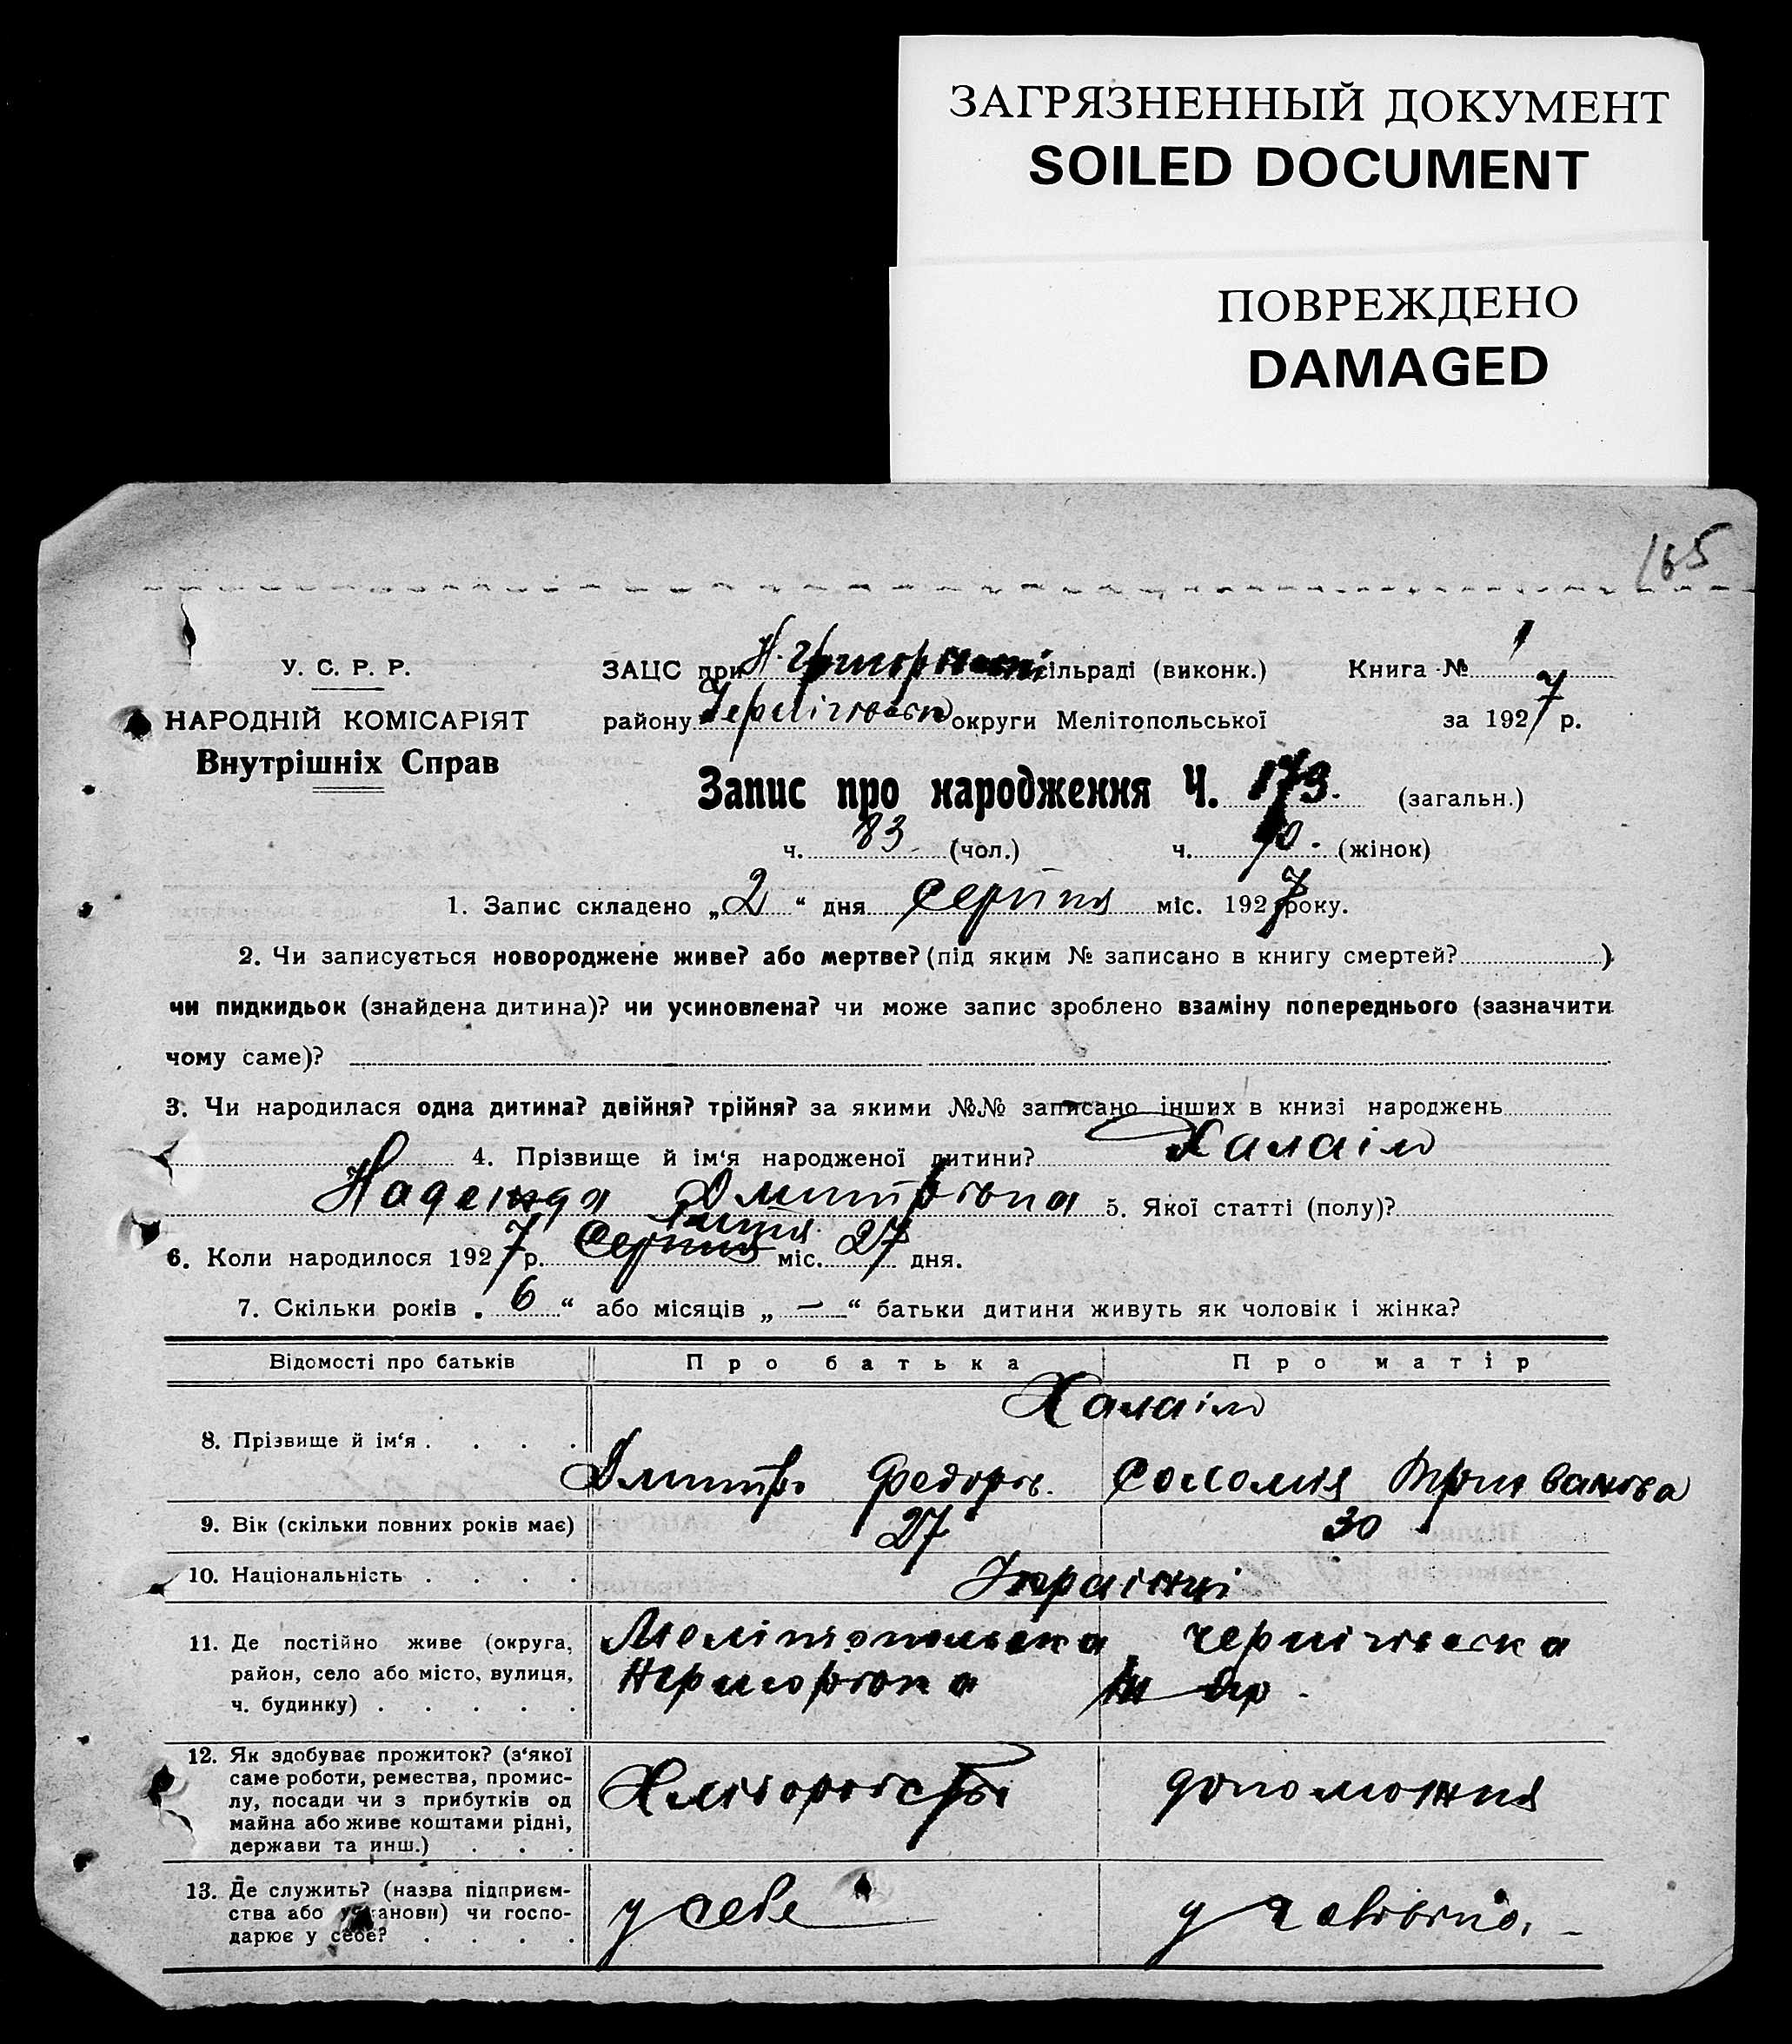 ЗАГРЯЗНЕННЫЙ ДОКУМЕНТ
SOILED DOCUMENT
ПОВРЕЖДЕНО
DAMAGED
165
У. С. Р. Р.
НАРОДНІЙ КОМІСАРІЯТ
Внутрішніх Справ
ЗАЦС при сільраді (виконк.) Книга № 1
району Чернігівськ округи Мелітопольської за 1927 р.
Запис про народження Ч. 173. (загальн.)
ч. 83 (чол.) ч. 90. (жінок)
1. Запис складено „2“ дня серпня міс. 1927 року.
2. Чи записується новороджене живе? або мертве? (під яким № записано в книгу смертей? )
чи пидкидьок (знайдена дитина)? чи усиновлена? чи може запис зроблено взаміну попереднього (зазначити
чому саме)?
3. Чи народилася одна дитина? двійня? трійня? за якими №№ записано інших в книзі народжень
4. Прізвище й ім‘я народженої дитини? Халаім
Надежда Дмитрівна 5. Якої статті (полу)?
6. Коли народилося 1927 р. Серпня липня міс. 27 дня.
7. Скільки років „6“ або місяців „—“ батьки дитини живуть як чоловік і жінка?
Відомості про батьків Про батька Про матір
Халаім
8. Прізвище й ім‘я . . . .
Дмитро Федорів. Соломія
9. Вік (скільки повних років має) 27 30
10. Національність . . . . Українці
11. Де постійно живе (округа, район, село або місто, вулиця, ч. будинку) . . . . .
Мелітопольська Чернігівська
12. Як здобуває прожиток? (з‘якої саме роботи, ремества, промислу, посади чи з прибутків од майна або живе коштами рідні, держави та инш.) . . .
Хліборобство допоможня
13. Де служить? (назва підприємства або установи) чи господарює у себе? . . . .
у себе у чоловіка. –